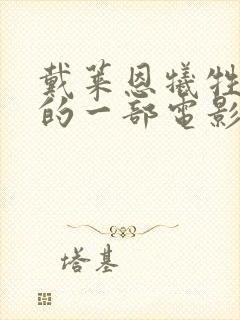 戴莱恩犧牲
的一部電影
塔基